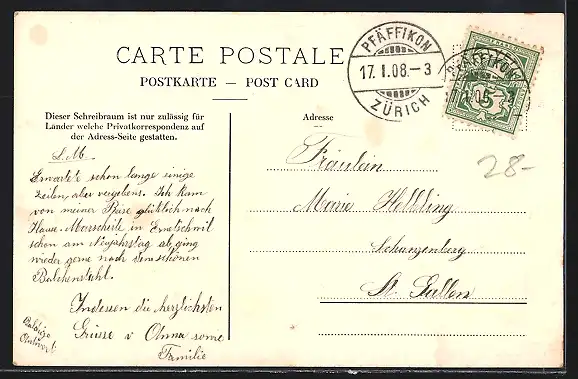 CARTE POSTALE
POSTKARTE — POST CARD
Dieser Schreibraum ist nur zulässig für
Länder welche Privatkorrespondenz auf
der Adress-Seite gestatten.
Adresse
PFÄFFIKON
17. I. 08.–3
ZÜRICH
PFÄFFIKON
28-
L. M.
Erwartet schon lange einige
Zeilen, aber vergebens. Ich kam
von meiner Base glücklich nach
Hause. Marscheite in
schon am Neujahrstag ab, ging
wieder gerne nach dem schönen
Indessen die herzlichsten
Grüsse v Anna sowie
Familie
Baldige
Antwort
Fräulein
Marie Helbling
Schanzenberg
St. Gallen